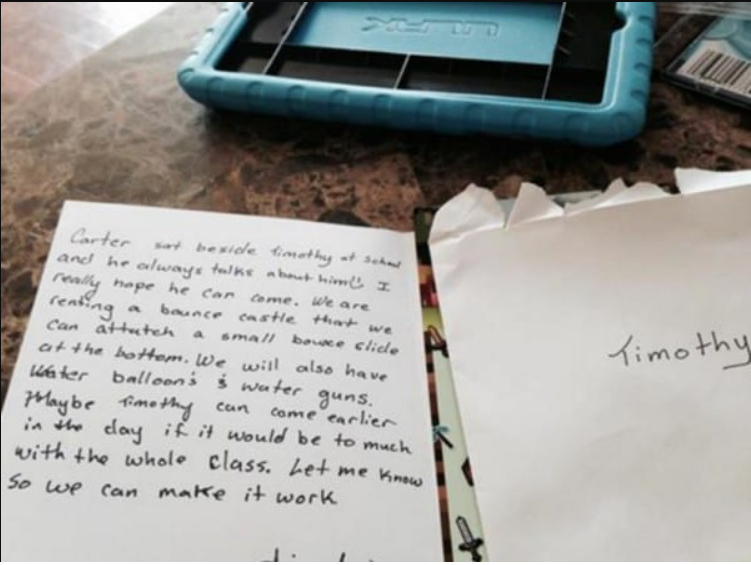 Carter sat beside Timothy at school
and he always talks about him! I
really hope he can come. We are
renting a bounce castle that we
can attatch a small bounce slide
at the bottom. We will also have
Water balloon's & water guns.
Maybe Timothy can come earlier
in the day if it would be to much
with the whole class. Let me know
so we can make it work
Timothy